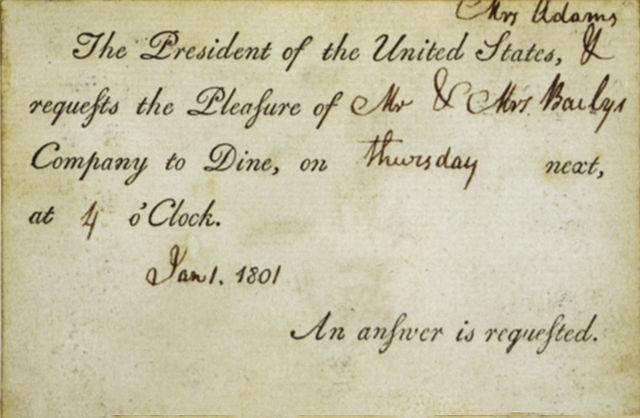 Mrs Adams
The President of the United States, &
requeſts the Pleaſure of Mr & Mrs Bailys
Company to Dine, on thursday next,
at 4 o'Clock.
Jan 1. 1801
An anſwer is requeſted.